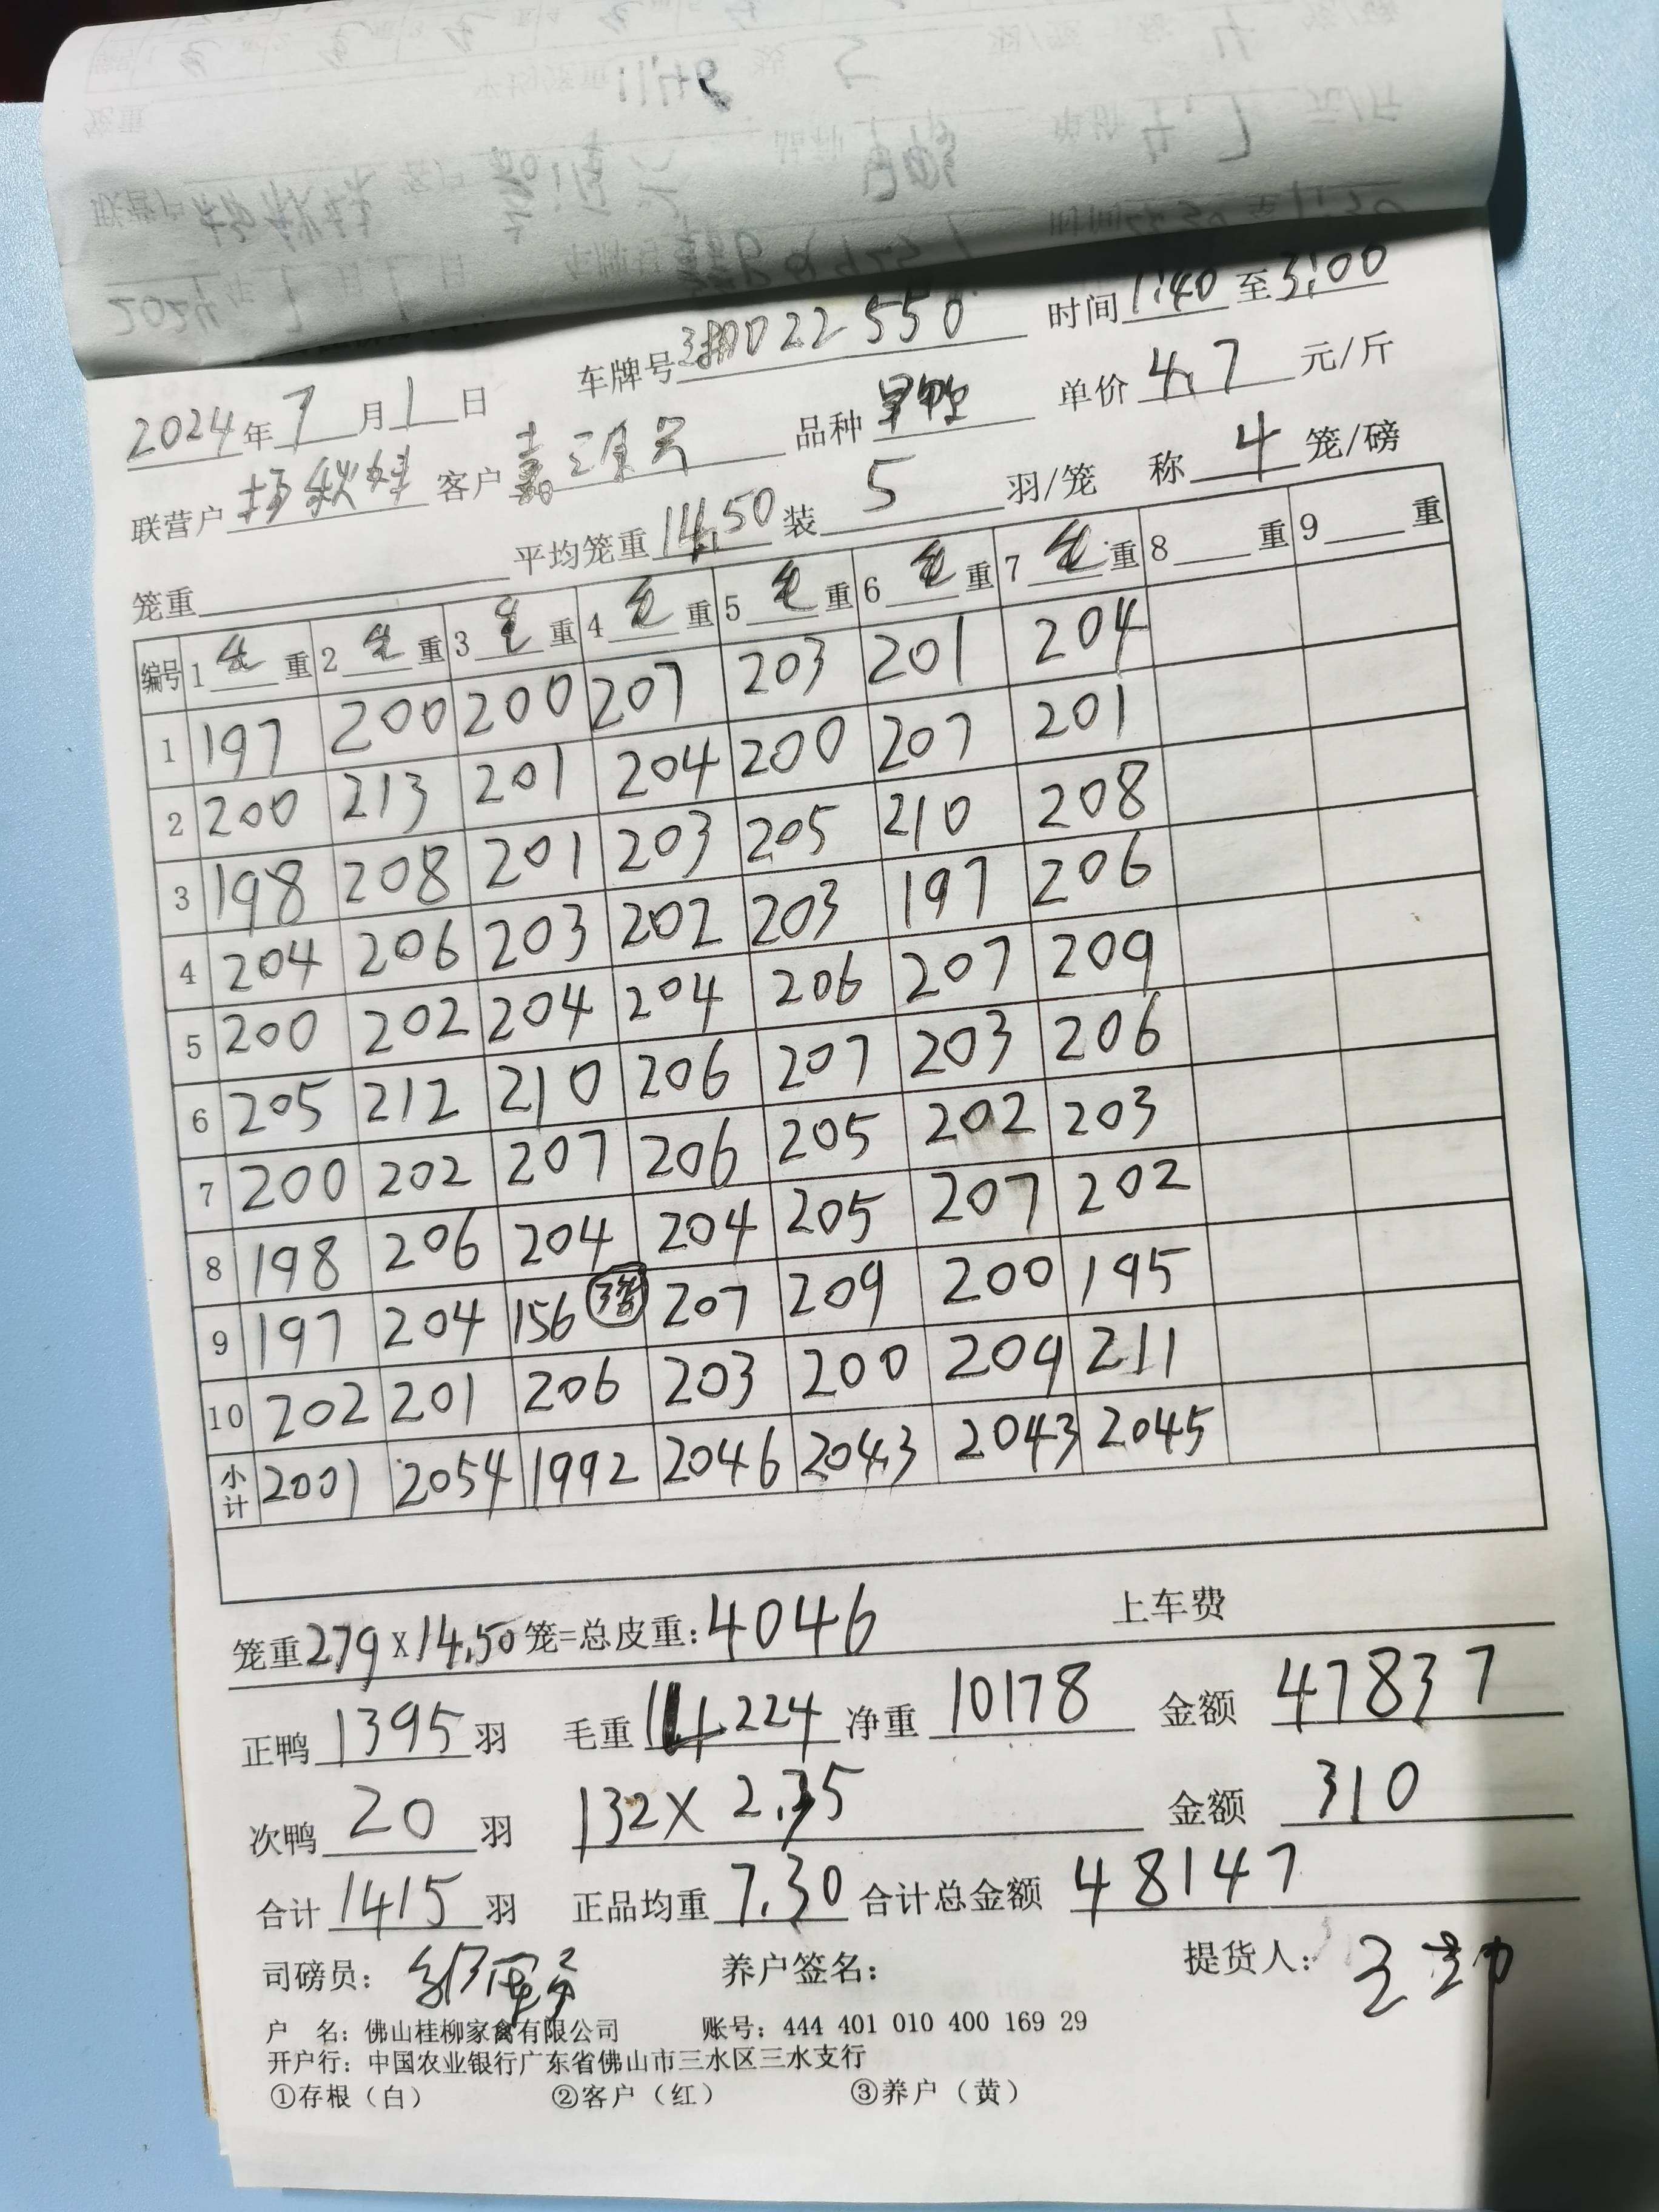 2024年7月1日 车牌号022550 时间1:40至3:00
联营户杨秋婵 客户嘉 品种 单价4.7元/斤
笼重 平均笼重14.50 装5羽/笼 称4笼/磅
编号 1毛重 2毛重 3毛重 4毛重 5毛重 6毛重 7毛重 8重 9重
1 197 200 200 207 203 201 204
2 200 213 201 204 200 207 201
3 198 208 201 203 205 210 208
4 204 206 203 202 203 197 206
5 200 202 204 204 206 207 209
6 205 212 210 206 207 203 206
7 200 202 207 206 205 202 203
8 198 206 204 204 205 207 202
9 197 204 156 207 209 200 195
10 202 201 206 203 200 209 211
小计 2001 2054 1992 2046 2043 2043 2045
笼重279×14.50笼=总皮重:4046 上车费
正鸭1395羽 毛重14224 净重10178 金额47837
次鸭20羽 132×2.35 金额310
合计1415羽 正品均重7.30 合计总金额48147
司磅员: 养户签名: 提货人:
户 名: 佛山桂柳家禽有限公司 账号: 444 401 010 400 169 29
开户行: 中国农业银行广东省佛山市三水区三水支行
①存根（白） ②客户（红） ③养户（黄）